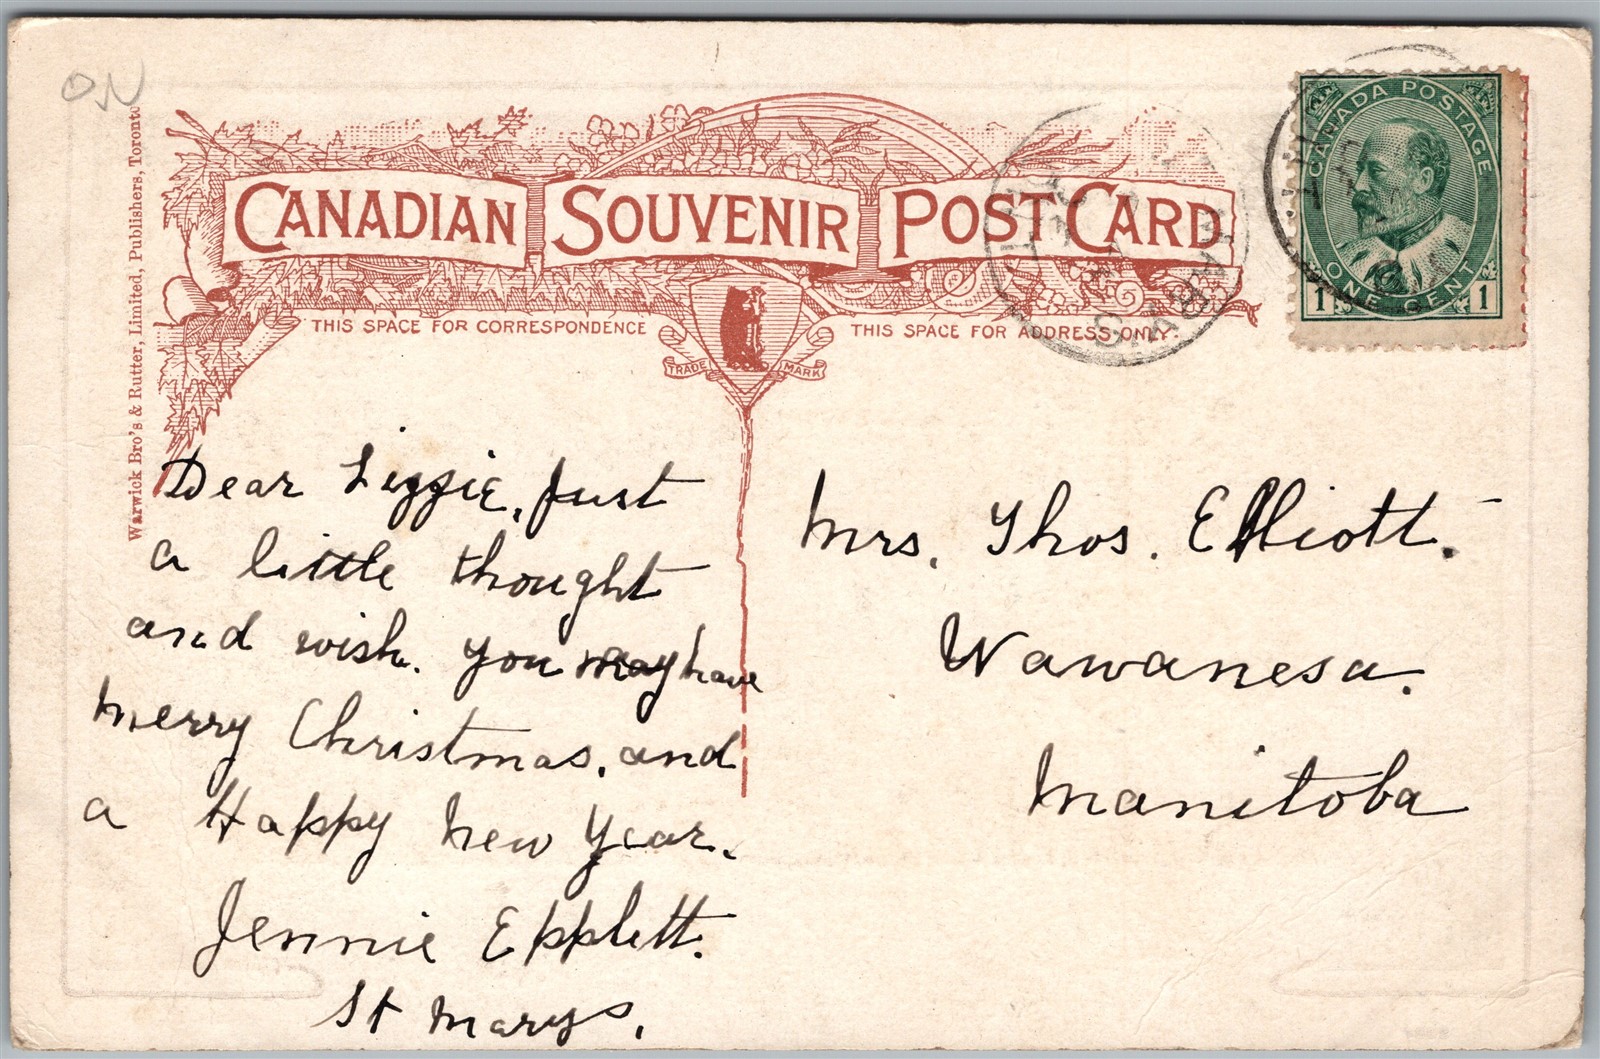 ON
Warwick Bro's & Rutter, Limited, Publishers, Toronto
CANADIAN SOUVENIR POST CARD
THIS SPACE FOR CORRESPONDENCE
THIS SPACE FOR ADDRESS ONLY.
TRADE MARK
CANADA POSTAGE
1 ONE CENT 1
Dear Lizzie, Just
a little thought
and wish. you may have
merry Christmas, and
a Happy New Year.
Jennie Epplett.
St Marys.
Mrs. Thos. Elliott.
Wawanesa.
Manitoba